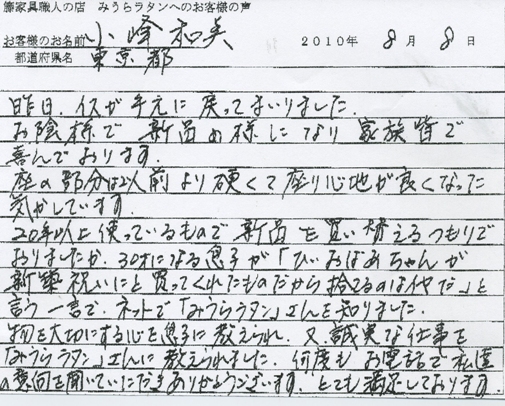 籐家具職人の店　みうらラタンへのお客様の声
お客様のお名前 小峰和美 2010年 8月 8日
都道府県名 東京都
昨日、イスが手元に戻ってまいりました。
お陰様で新品の様になり家族皆で
喜んでおります。
座の部分は以前より硬くて座り心地が良くなった
気がしています。
20年以上使っているもので新品を買い替えるつもりで
おりましたが、30才になる息子が「ひいおばあちゃんが
新築祝いにと買ってくれたものだから捨てるのは他だ」と
言う一言で、ネットで「みうらラタン」さんを知りました。
物を大切にする心を息子に教えられ、又、誠実な仕事を
「みうらラタン」さんに教えられました。何度もお電話で私達
の意向を聞いていただきありがとうございます。とても満足しております。